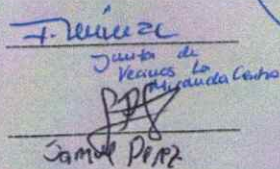 Junta de
Vecinos La
Miranda Centro
Samuel Perez